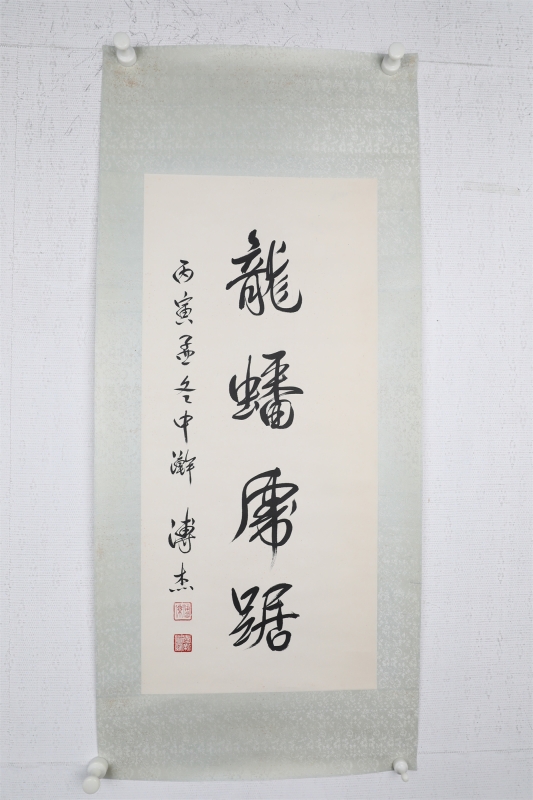 龍蟠虎踞
丙寅孟冬中澣 溥杰